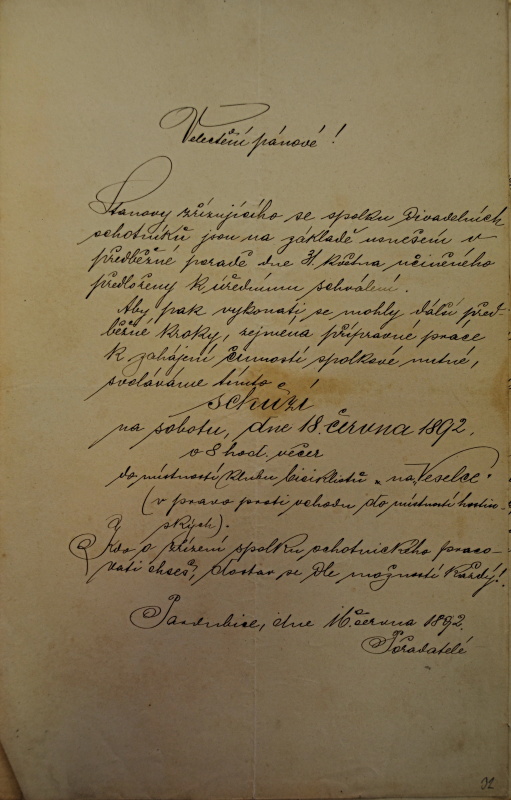 Velectění pánové!
Stanovy zřizujícího se spolku divadelních
ochotníků jsou na základě usnešení v
předběžné poradě dne 31. května učiněného
předloženy k úřednímu schválení.
Aby pak vykonati se mohly další před-
běžné kroky, zejména přípravné práce
k zahájení činnosti spolkové nutné,
svoláváme tímto
schůzi
na sobotu, dne 18. června 1892.
o 8 hod. večer
do místností klubu biciklistů „na Veselce“
(v pravo proti vchodu do místností hostin-
ských).
Kdo o zřízení spolku ochotnického praco-
vati chceš, dostav se dle možnosti každý!
Pardubice, dne 16. června 1892.
Pořadatelé